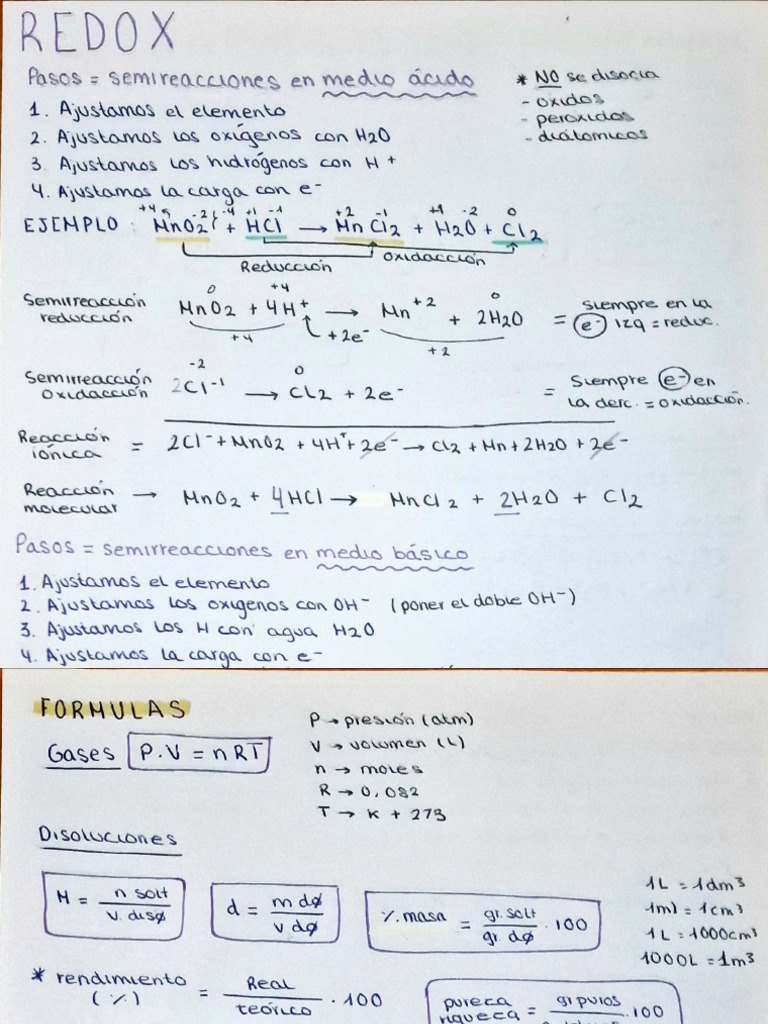 REDOX
Pasos = semireacciones en medio ácido
* NO se disocia
- óxidos
- peróxidos
- diatómicos
1. Ajustamos el elemento
2. Ajustamos los oxígenos con H2O
3. Ajustamos los hidrógenos con H+
4. Ajustamos la carga con e-
+4 -2 -4 +1 -1 +2 -1 +1 -2 0
EJEMPLO: MnO2 + HCl → MnCl2 + H2O + Cl2
Reducción
oxidacción
Semirreacción reducción
0 +4 0
MnO2 + 4H+ → Mn+2 + 2H2O
+4 +2e- +2
= Siempre en la
e- izq = reduc.
Semirreacción oxidacción
-2 0
2Cl-1 → Cl2 + 2e-
= Siempre e- en
la derc. = oxidacción.
Reacción iónica = 2Cl- + MnO2 + 4H+ + 2e- → Cl2 + Mn + 2H2O + 2e-
Reacción molecular → MnO2 + 4HCl → MnCl2 + 2H2O + Cl2
Pasos = semirreacciones en medio básico
1. Ajustamos el elemento
2. Ajustamos los oxigenos con OH- (poner el doble OH-)
3. Ajustamos los H con agua H2O
4. Ajustamos la carga con e-
FORMULAS
Gases P.V = nRT
P → presión (atm)
V → volumen (L)
n → moles
R → 0,082
T → K + 273
Disoluciones
M = n solt / v. disø
d = m dø / v dø
%.masa = gr. solt / gr. dø · 100
1L = 1dm3
1ml = 1cm3
1L = 1000cm3
1000L = 1m3
* rendimiento (%) = Real / teórico · 100
pureza riqueza = gr puros / · 100